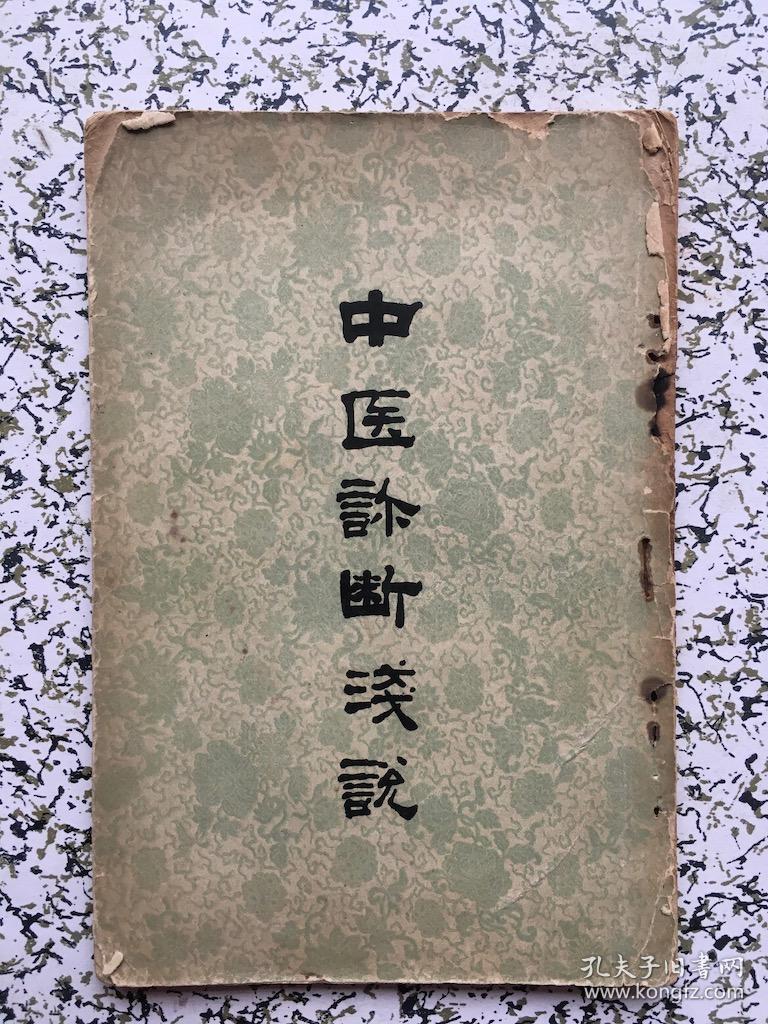 中医診断淺說
孔夫子旧书网
www.kongfz.com